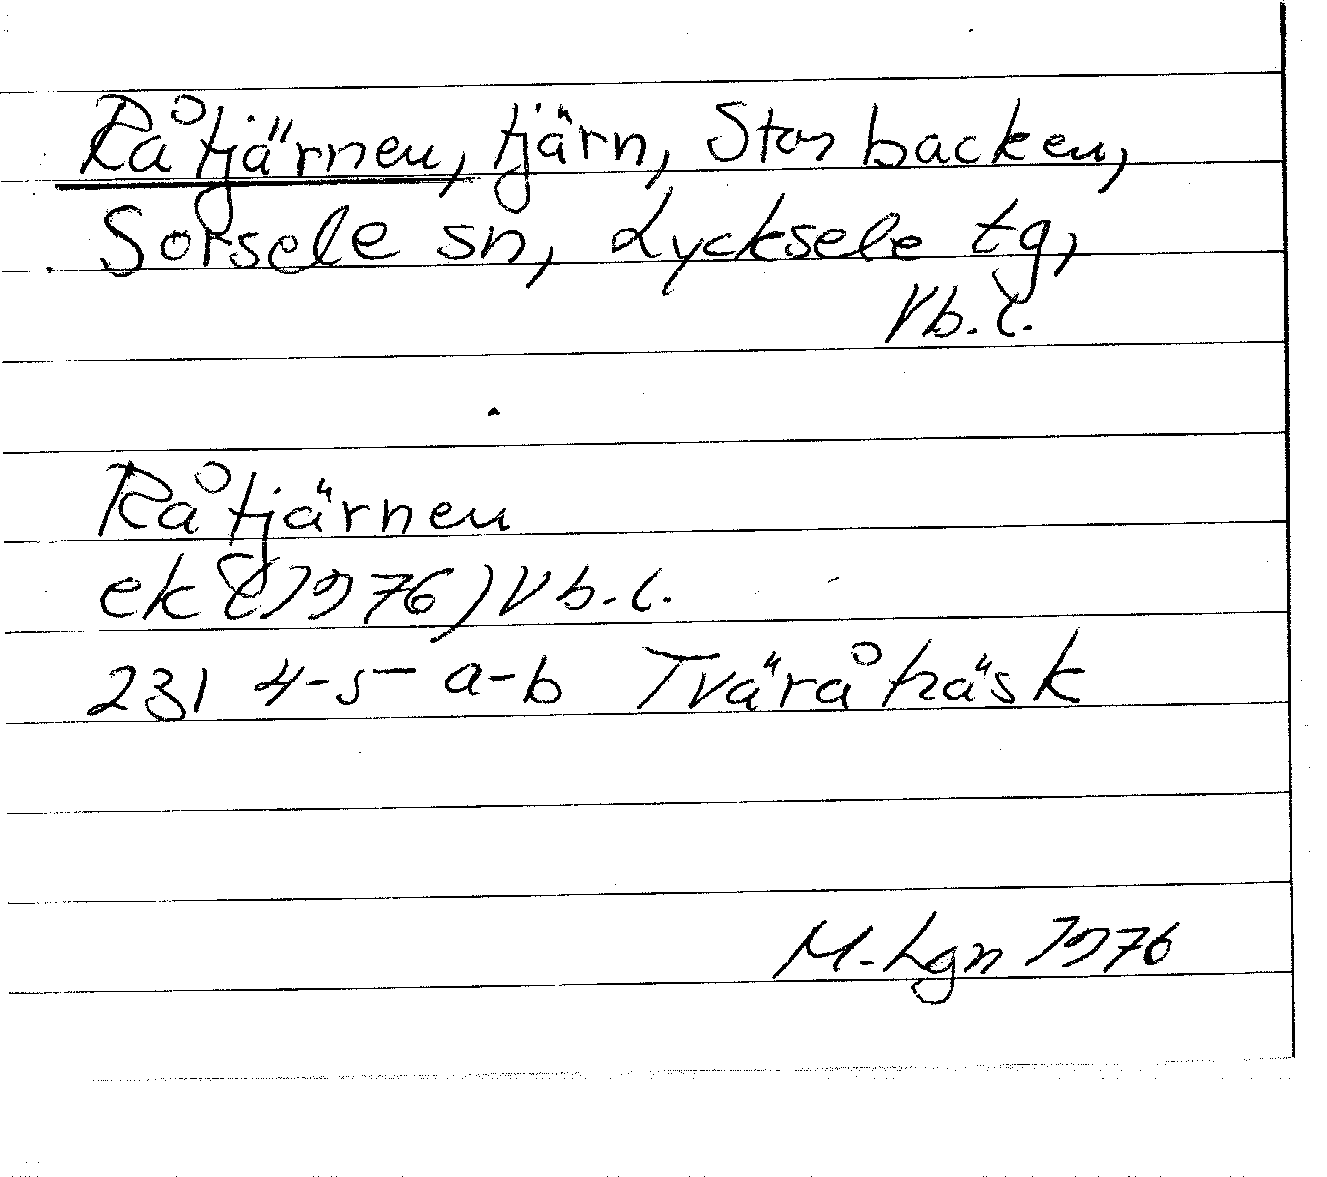 Råtjärnen, tjärn, Storbacken,
Sorsele sn, Lycksele tg,
Vb.l.
Råtjärnen
ek (1976) Vb.l.
231 4-5- a-b Tväråträsk
M-Lgn 1976